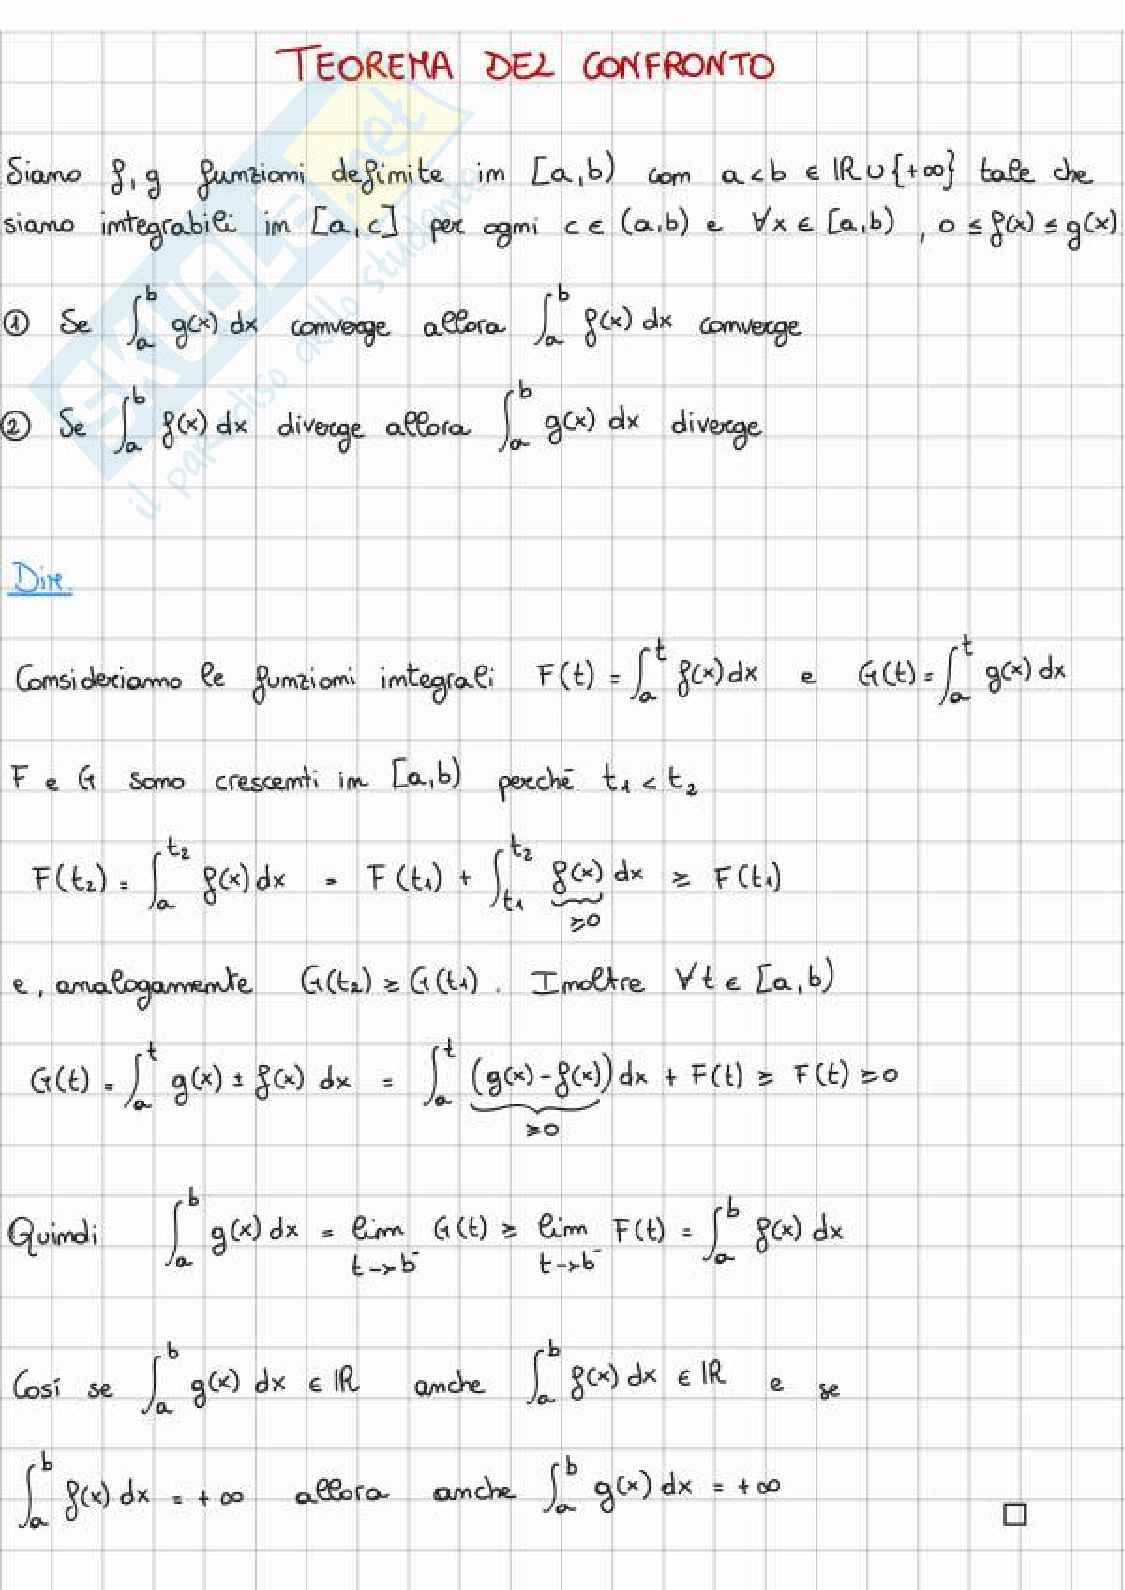 TEOREMA DEL CONFRONTO
Siano f, g funzioni definite in [a,b) con a<b ∈ ℝ∪{+∞} tale che
siano integrabili in [a,c] per ogni c ∈ (a,b) e ∀x ∈ [a,b), 0 ≤ f(x) ≤ g(x)
① Se ∫_a^b g(x) dx converge allora ∫_a^b f(x) dx converge
② Se ∫_a^b f(x) dx diverge allora ∫_a^b g(x) dx diverge
SKUOLA.net
il paradiso dello studente
Dim.
Consideriamo le funzioni integrali F(t) = ∫_a^t f(x) dx e G(t) = ∫_a^t g(x) dx
F e G sono crescenti in [a,b) perché t₁ < t₂
F(t₂) = ∫_a^{t₂} f(x) dx = F(t₁) + ∫_{t₁}^{t₂} f(x) dx ≥ F(t₁)
≥0
e, analogamente G(t₂) ≥ G(t₁). Inoltre ∀t ∈ [a,b)
G(t) = ∫_a^t g(x) ± f(x) dx = ∫_a^t (g(x) - f(x)) dx + F(t) ≥ F(t) ≥ 0
≥0
Quindi ∫_a^b g(x) dx = lim_{t→b⁻} G(t) ≥ lim_{t→b⁻} F(t) = ∫_a^b f(x) dx
Così se ∫_a^b g(x) dx ∈ ℝ anche ∫_a^b f(x) dx ∈ ℝ e se
∫_a^b f(x) dx = +∞ allora anche ∫_a^b g(x) dx = +∞
□